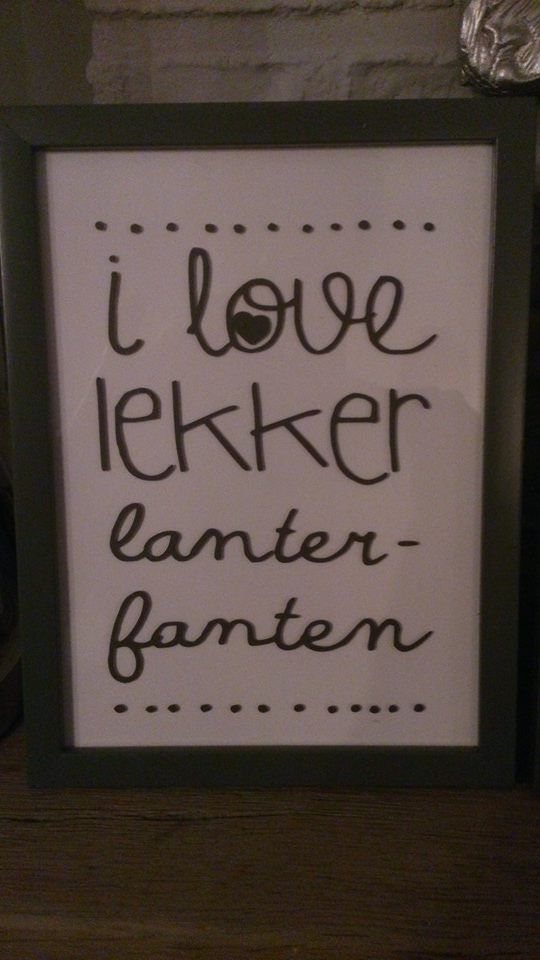 i love
lekker
lanter-
fanten